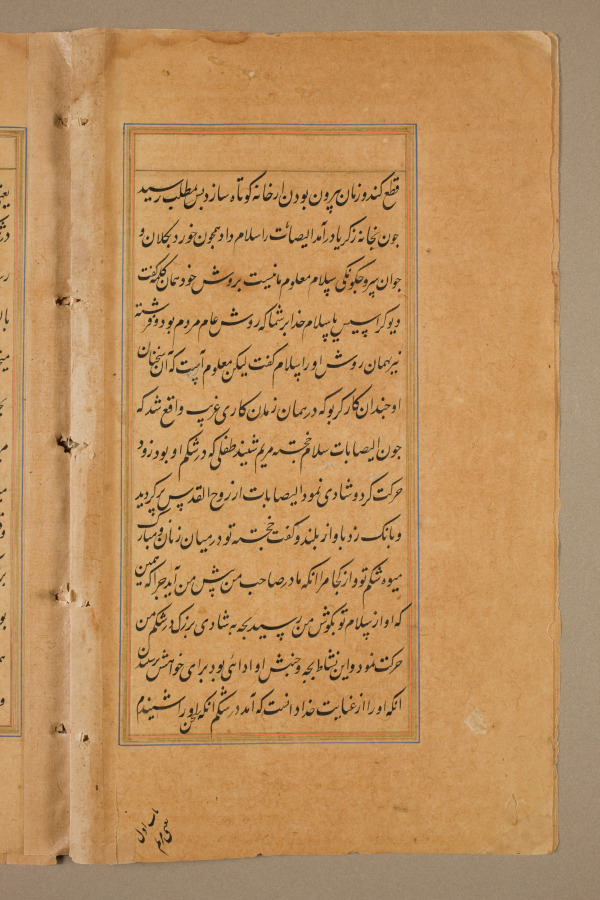 قطع کند و زمان بیرون بودن از خانه کوتاه سازد پس مطلب رسید
چون بخانه زکریا درآمد الیصابت را سلام داد همچون خوردی بکلان و
جوان بپیرو چگونگی سلام معلوم ما نیست بروش خود همان کلمه گفت
و یو کراسیس یا سلام خدا بر شما که روش عام مردم بود و فرشته
نیز بهمان روش او را سلام گفت لیکن معلوم است که آن سخنان
او چندان کارگر بود که در همان زمان کاری غریب واقع شد که
چون الیصابات سلام خجسته مریم شنید طفلی که در شکم او بود زود
حرکت کرد و شادی نمود الیصابات از روح القدس پر گردید
و بانک زد باواز بلند و گفت خجسته تو در میان زنان و مبارک
میوه شکم تو و از کجا مرا انکه مادر صاحب من پیش من آید چرا که همین
که اواز سلام تو بگوش من رسید بچه به شادی بزرک در شکم من
حرکت نمود و این نشاط بچه و جنبش او ادائی بود برای خواهش رسیدن
انکه او را از عنایت خدا دانست که آمد در شکم انکه او را شنیدم
لیکن
باب اول
یعنی مریم